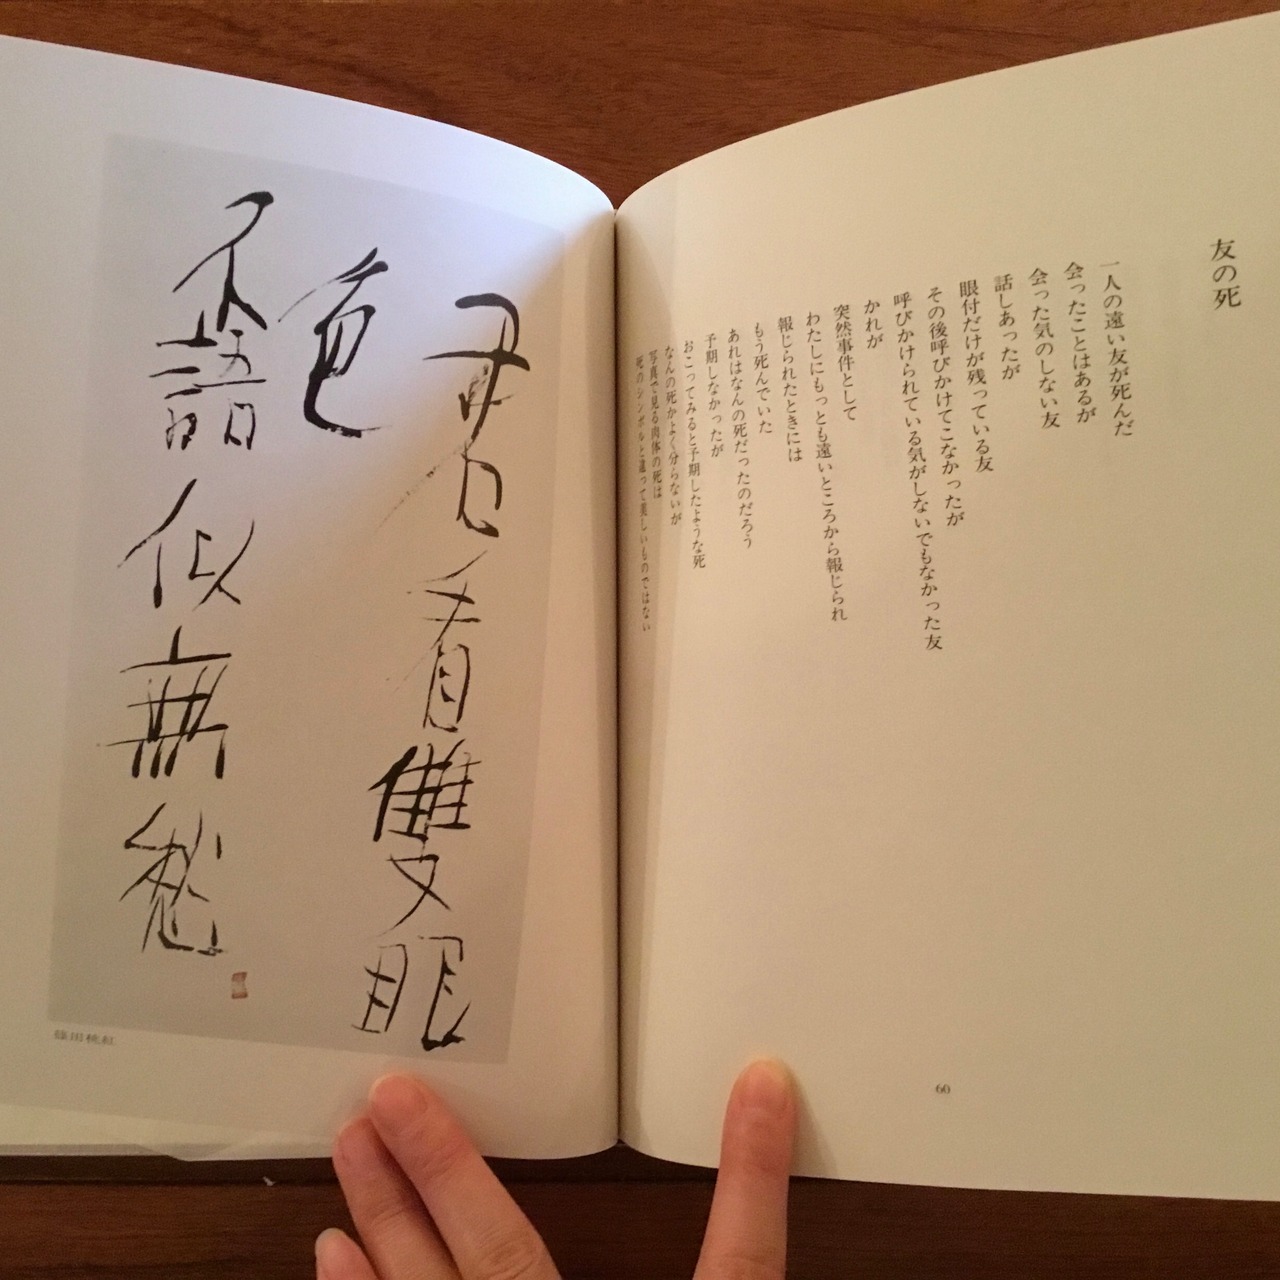 友の死
一人の遠い友が死んだ
会ったことはあるが
会った気のしない友
話しあったが
眼付だけが残っている友
その後呼びかけてこなかったが
呼びかけられている気がしないでもなかった友
かれが
突然事件として
わたしにもっとも遠いところから報じられ
報じられたときには
もう死んでいた
あれはなんの死だったのだろう
予期しなかったが
おこってみると予期したような死
なんの死かよく分らないが
写真で見る肉体の死は
死のシンボルと違って美しいものではない
60
君看雙眼
色
不語似無愁
篠田桃紅